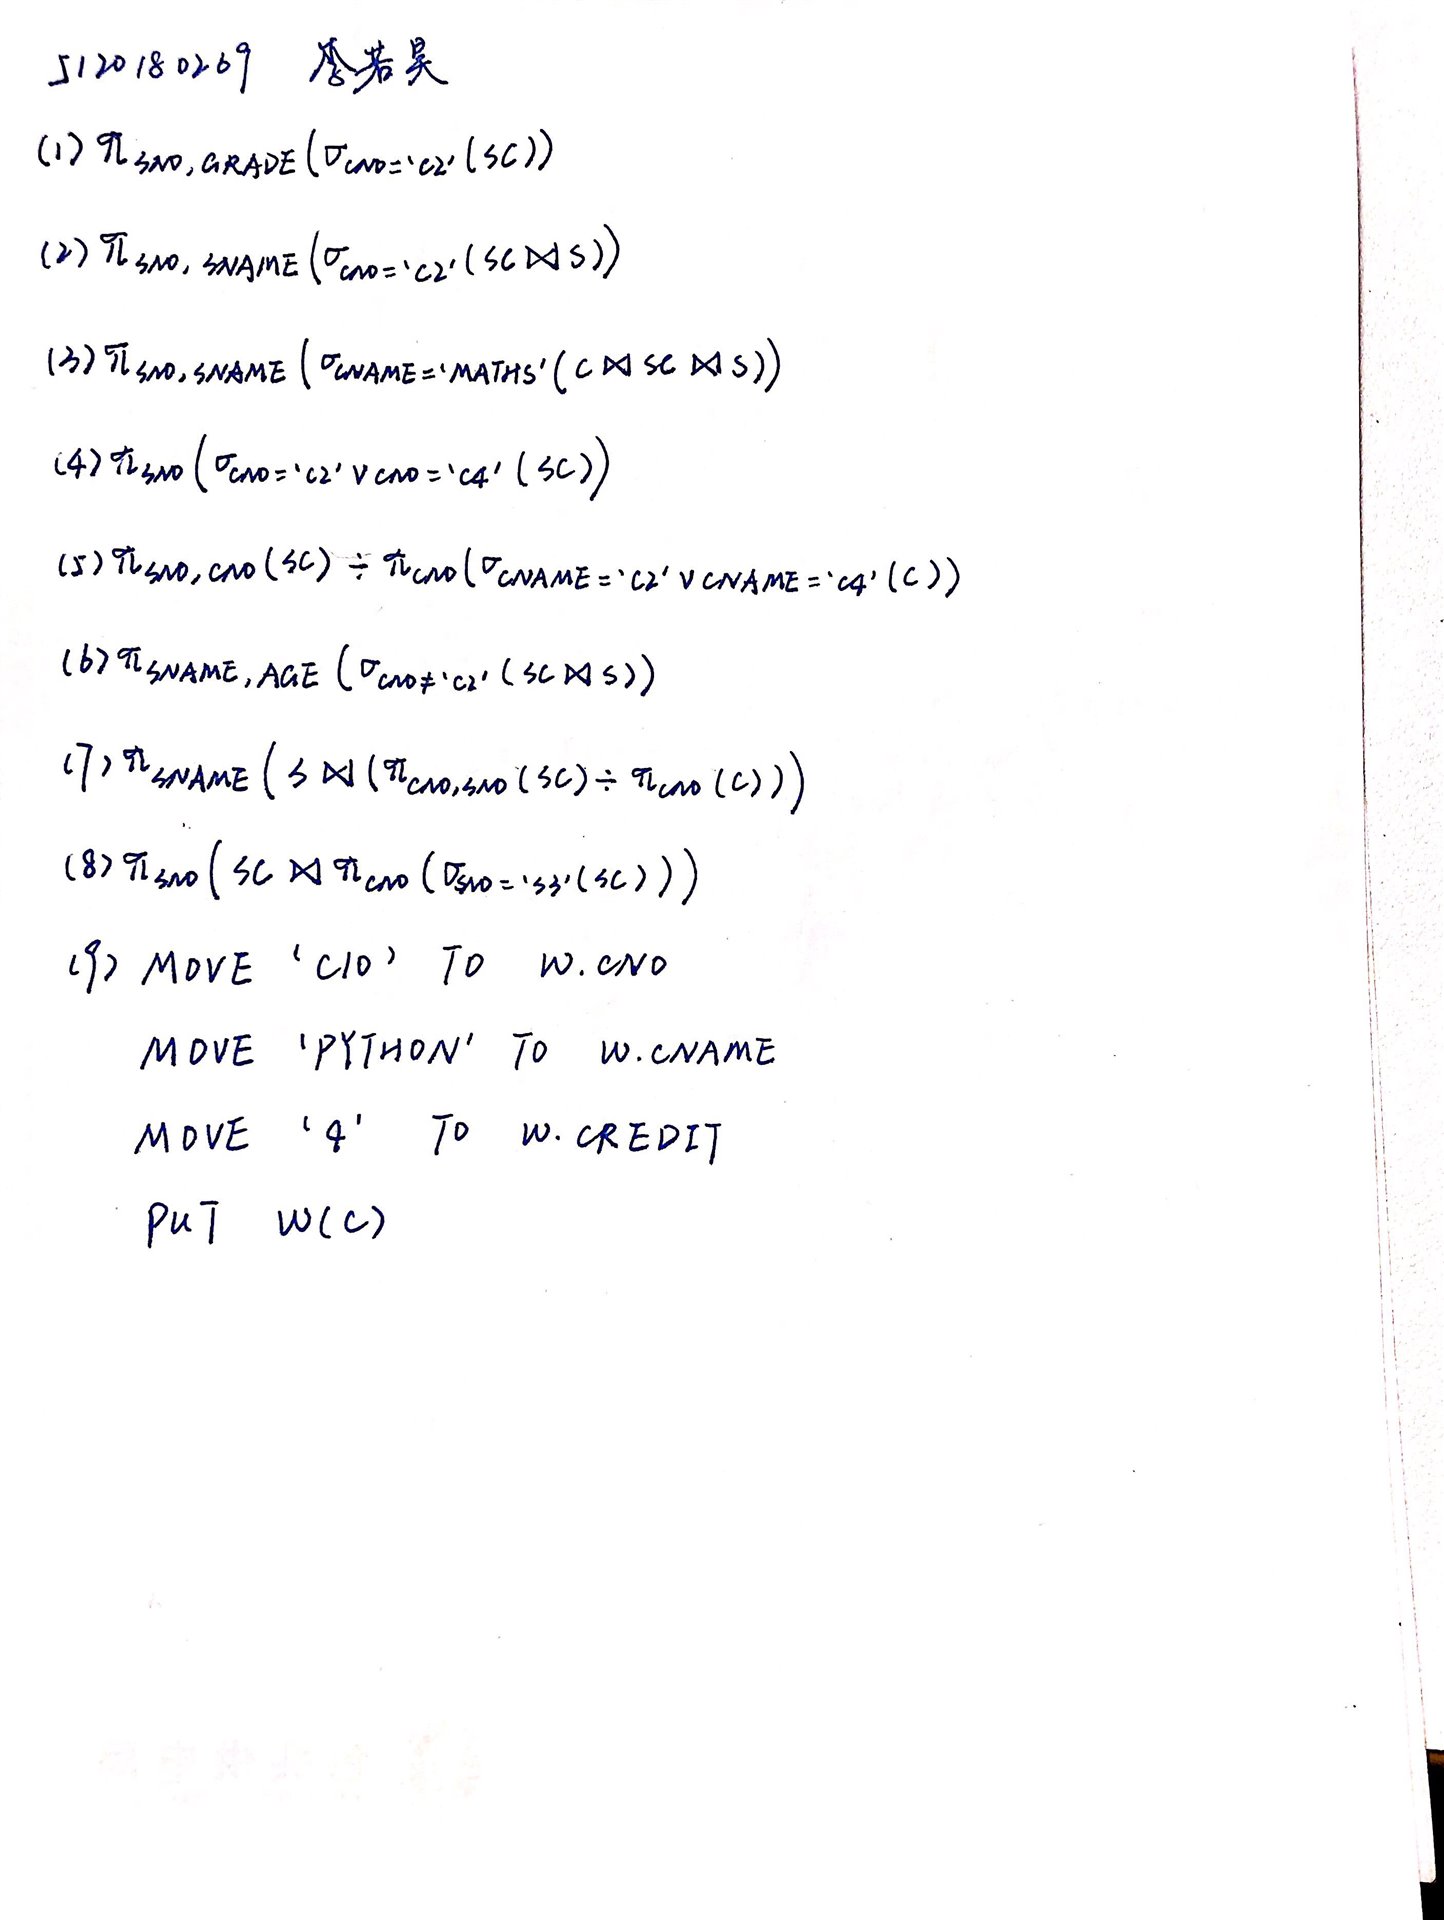 5120180269 李若昊
(1) π SNO, GRADE (σ CNO='C2' (SC))
(2) π SNO, SNAME (σ CNO='C2' (SC⋈S))
(3) π SNO, SNAME (σ CNAME='MATHS' (C ⋈ SC ⋈ S))
(4) π SNO (σ CNO='C2' ∨ CNO='C4' (SC))
(5) π SNO, CNO (SC) ÷ π CNO (σ CNAME='C2' ∨ CNAME='C4' (C))
(6) π SNAME, AGE (σ CNO≠'C2' (SC⋈S))
(7) π SNAME (S ⋈ (π CNO,SNO (SC) ÷ π CNO (C)))
(8) π SNO (SC ⋈ π CNO (σ SNO='S3' (SC)))
(9) MOVE 'C10' TO W.CNO
MOVE 'PYTHON' TO W.CNAME
MOVE '4' TO W.CREDIT
PUT W(C)